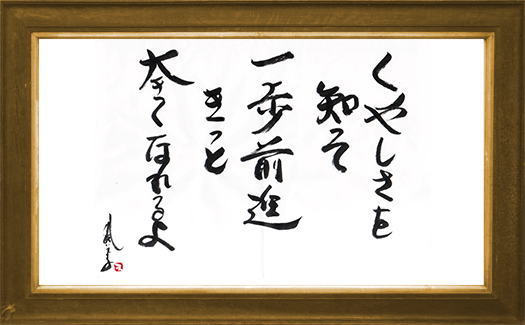 くやしさを
知って
一歩前進
きっと
大きくなれるよ